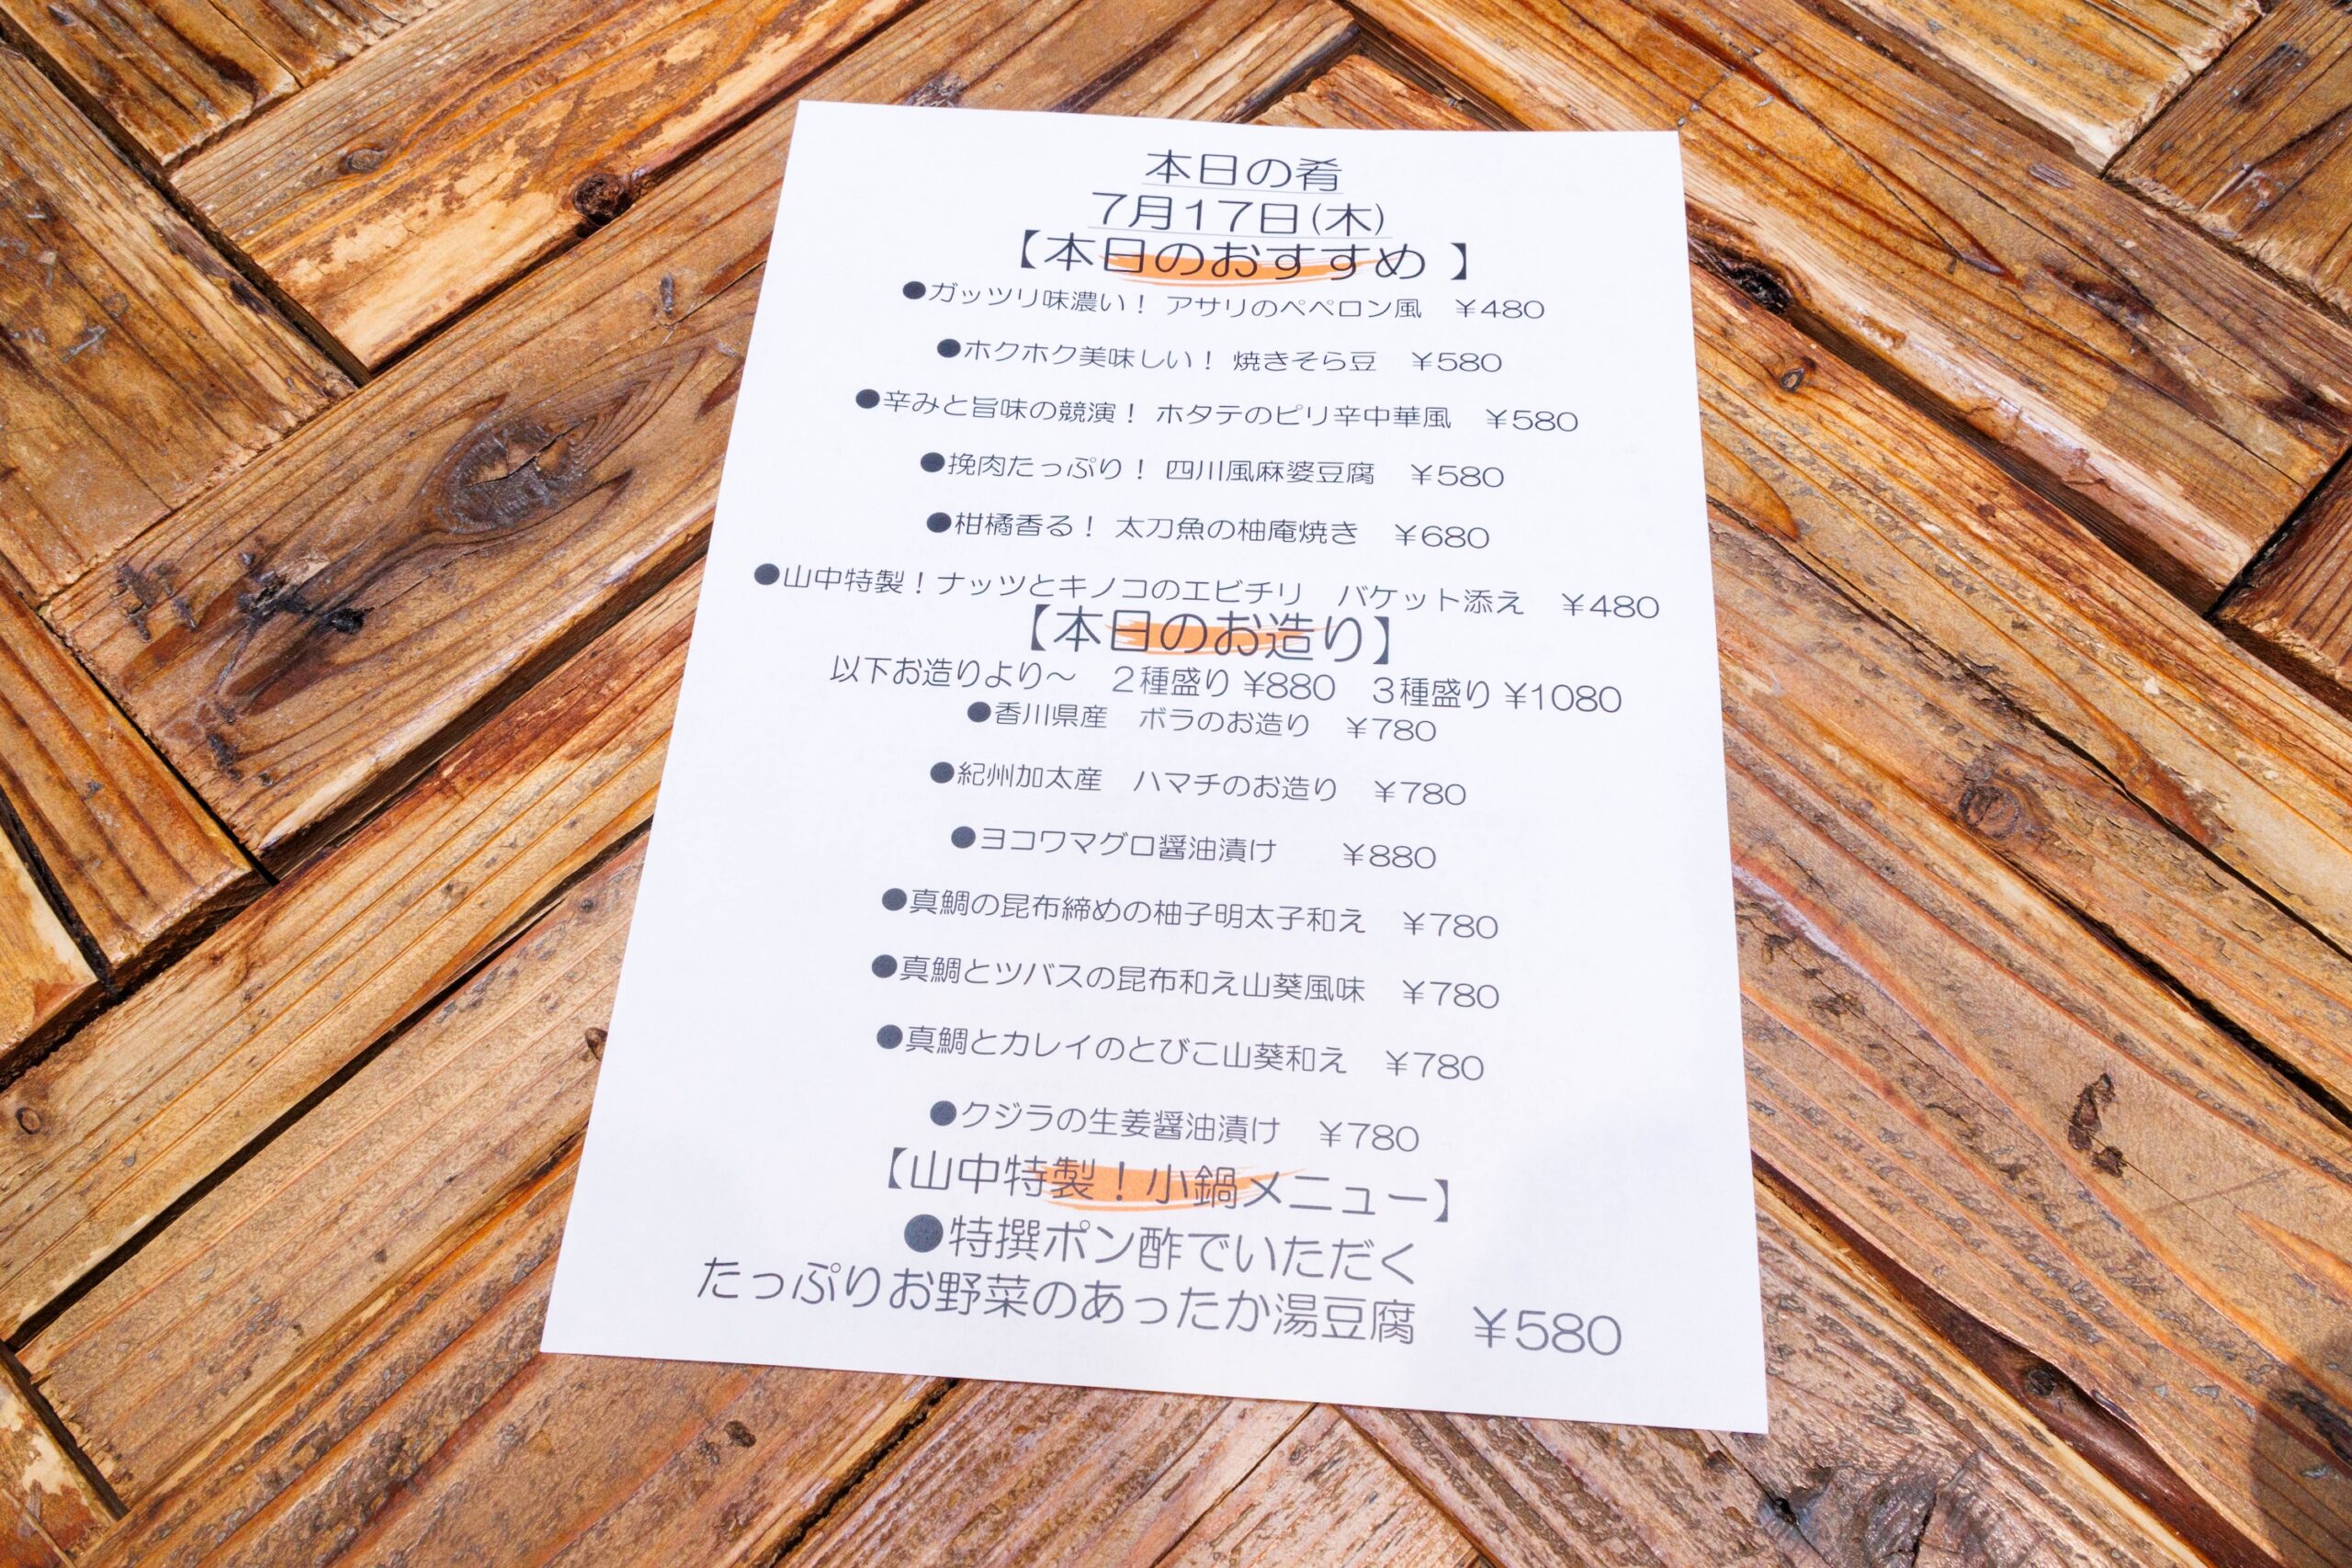 本日の肴
7月17日(木)
【本日のおすすめ 】
●ガッツリ味濃い！ アサリのペペロン風　￥480
●ホクホク美味しい！ 焼きそら豆　￥580
●辛みと旨味の競演！ ホタテのピリ辛中華風　￥580
●挽肉たっぷり！ 四川風麻婆豆腐　￥580
●柑橘香る！ 太刀魚の柚庵焼き　￥680
●山中特製！ナッツとキノコのエビチリ　バケット添え　￥480
【本日のお造り】
以下お造りより～　２種盛り ¥880　３種盛り ¥1080
●香川県産　ボラのお造り　￥780
●紀州加太産　ハマチのお造り　￥780
●ヨコワマグロ醤油漬け　　￥880
●真鯛の昆布締めの柚子明太子和え　￥780
●真鯛とツバスの昆布和え山葵風味　￥780
●真鯛とカレイのとびこ山葵和え　￥780
●クジラの生姜醤油漬け　￥780
【山中特製！小鍋メニュー】
●特撰ポン酢でいただく
たっぷりお野菜のあったか湯豆腐　￥580